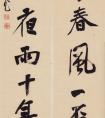 春風一
夜雨十年